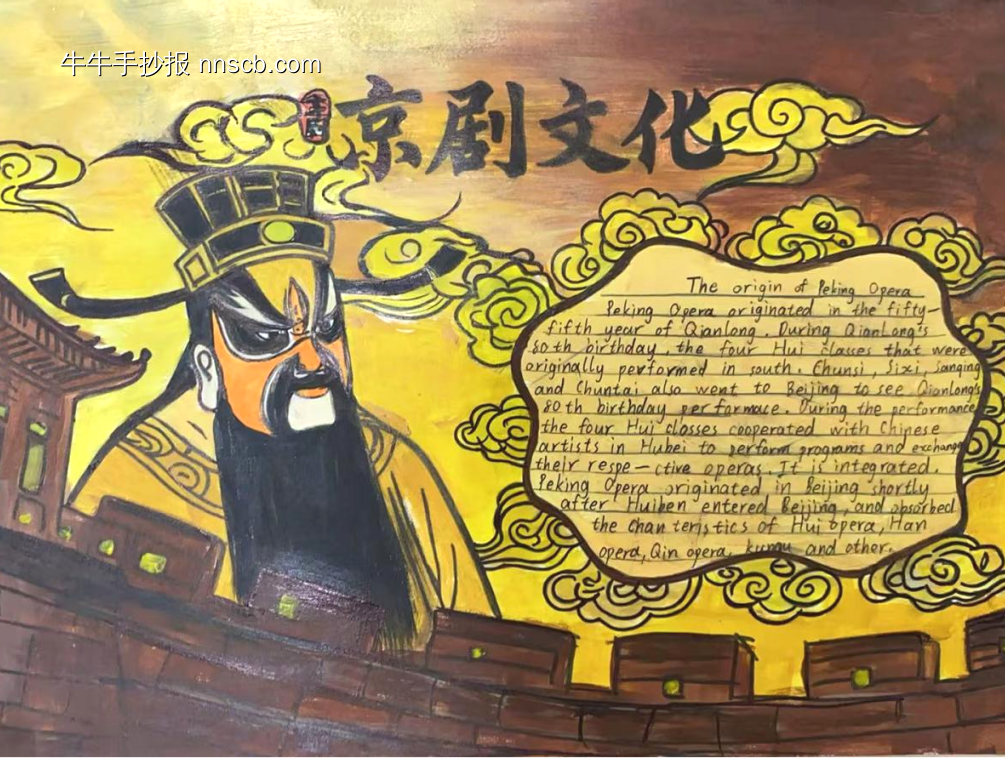 牛牛手抄报 nnscb.com
京剧文化
The origin of Peking Opera
Peking Opera originated in the fifty-
fifth year of Qianlong. During QianLong's
80th birthday, the four Hui classes that were
originally performed in south. Chunsi, Sixi, Sanqing
and Chuntai also went to Beijing to see Qianlong's
80th birthday performace. During the performance
the four Hui classes cooperated with Chinese
artists in Hubei to perform programs and exchange
their respe-ctive operas. It is integrated.
Peking Opera originated in Beijing shortly
after Huiben entered Beijing, and absorbed
the chanteristics of Hui opera, Han
opera, Qin opera, and other.